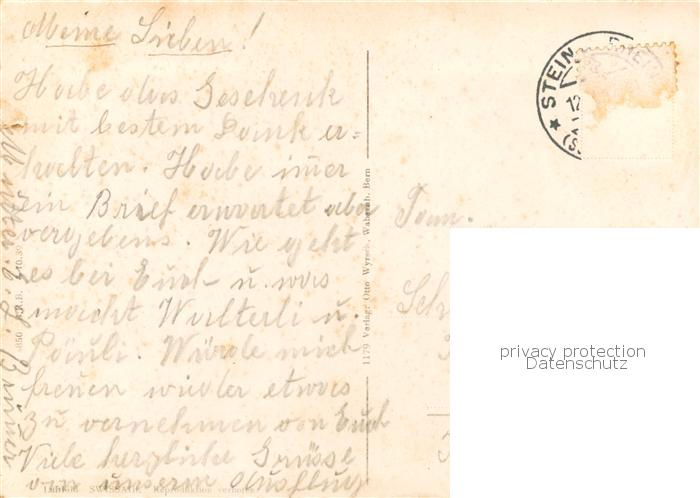 Meine Lieben!
Habe das Geschenk
mit bestem Dank er=
halten. Habe imer
ein Brief erwartet aber
vergebens. Wie geht
es bei Euch u. was
macht Walterli u.
Päuli. Würde mich
freuen wieder etwas
zu vernehmen von Euch
Viele herzliche Grüsse
von unserm Ausflug
SWISSAIR. Reproduktion verboten
1179 Verlag: Otto Wyrsch, Wabern b. Bern
STEIN
Fam.
Sch
privacy protection
Datenschutz